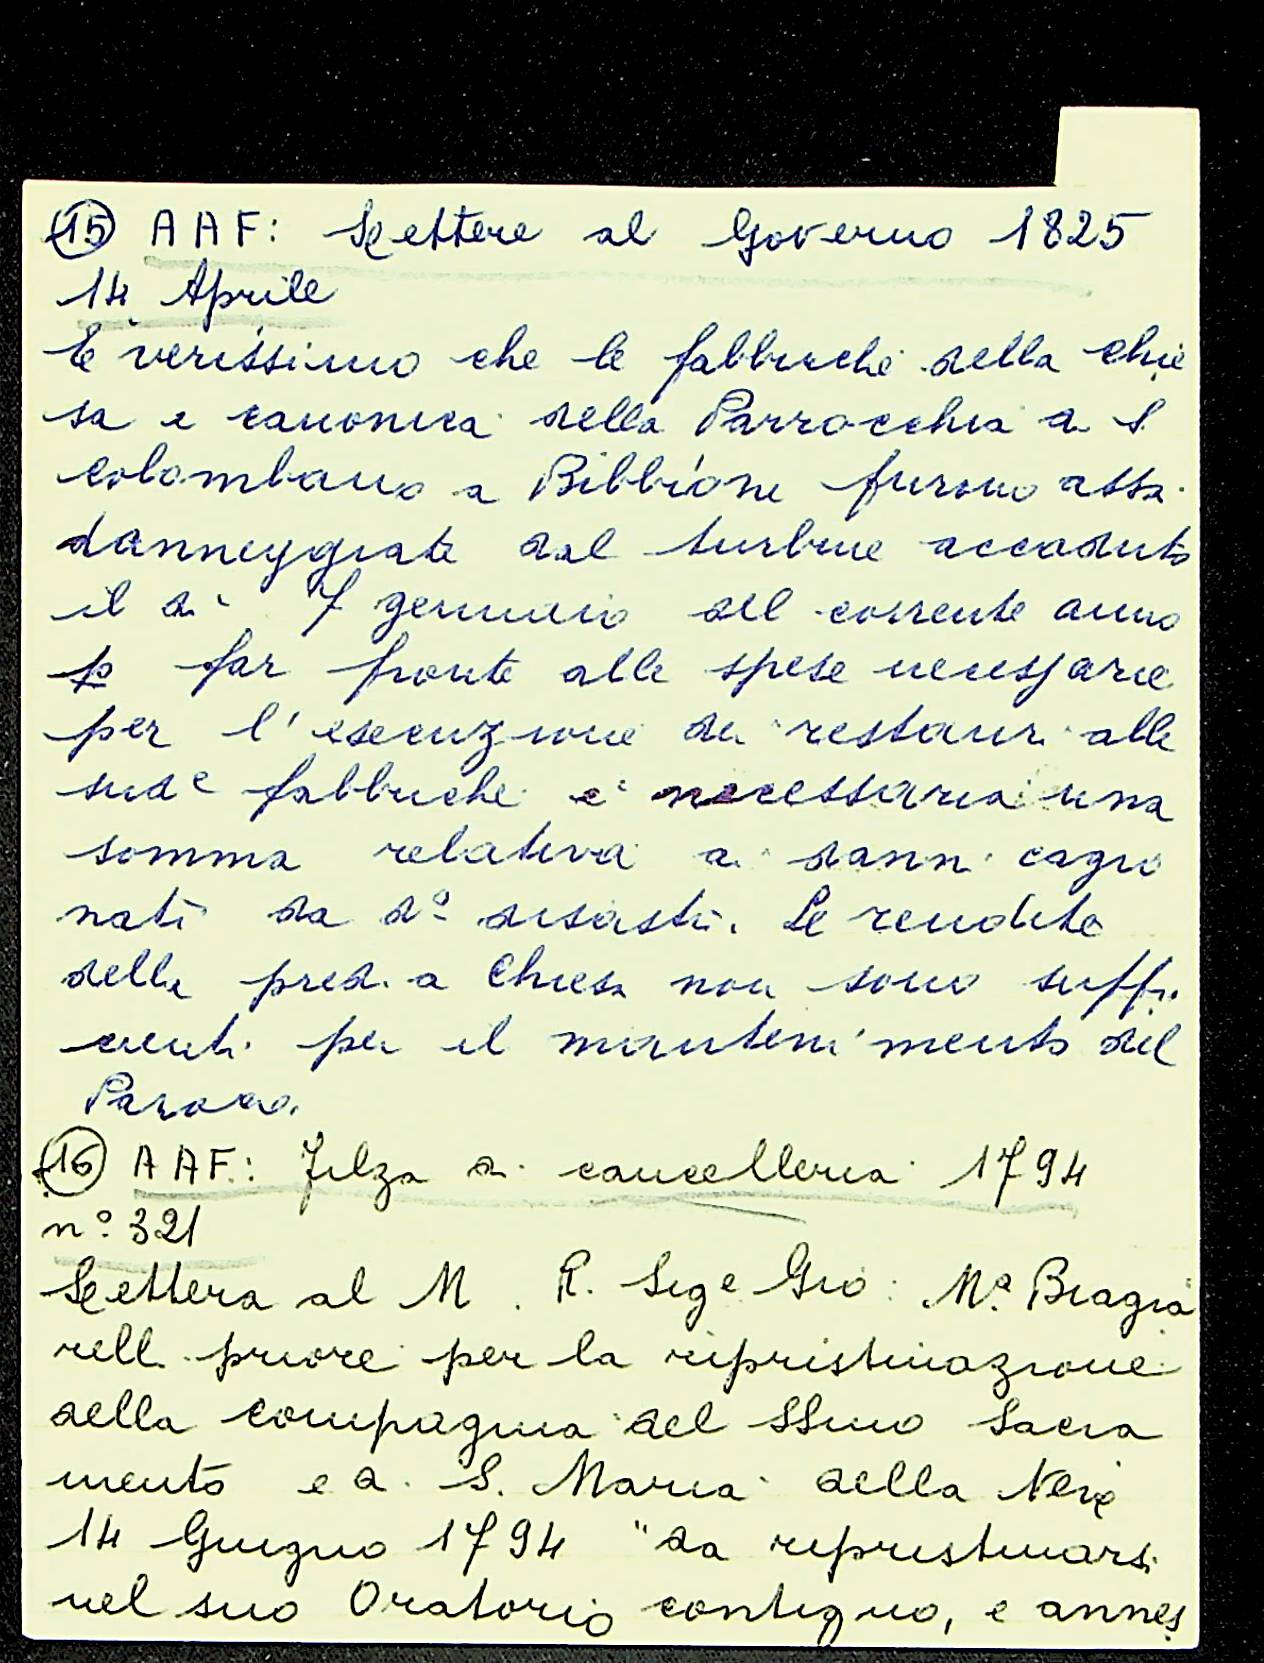 15 AAF: Lettere al Governo 1825
14 Aprile
È verissimo che le fabbriche della chie
sa e canonica della Parrocchia di S.
Colombano a Bibbione furono assai
danneggiate dal turbine accaduto
il dì 7 gennaio del corrente anno
p far fronte alle spese necessarie
per l'esecuzione dei restauri alle
sudᵉ fabbriche è necessaria una
somma relativa ai danni cagio
nati da dᵒ disastri. Le rendite
della pred.a Chiesa non sono suffi
cienti per il mantenimento del
Parroco.
16 AAF.: Filza di cancelleria 1794
n° 321
Lettera al M. R. Sigᵉ Gio: Mª Biagia
relli priore per la ripristinazione
della compagnia del SSmo Sacra
mento e di S. Maria della Neve
14 Giugno 1794 "da ripristinarsi
nel suo Oratorio contiguo, e annes